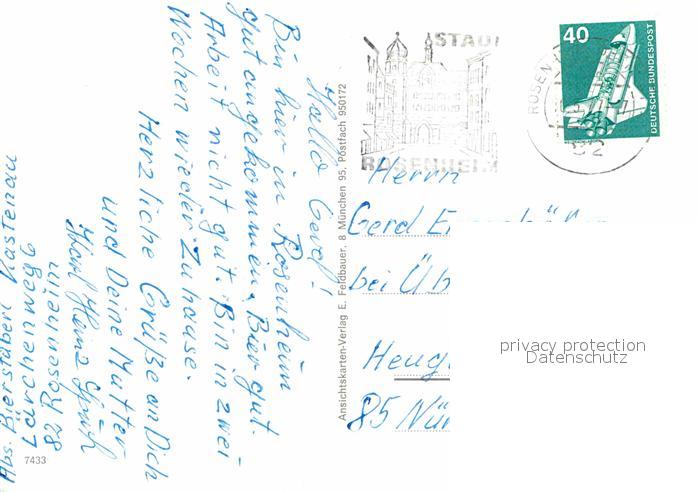 Hallo Gerd!
Bin hier in Rosenheim
gut angekommen. Bier gut.
Arbeit nicht gut. Bin in zwei
Wochen wieder zuhause.
Herzliche Grüße an Dich
und Deine Mutter
Karl Heinz
82 Rosenheim
Lärchenweg 6
Abs. Bierstüberl Kastenau
7433
Ansichtskarten-Verlag E. Feldbauer, 8 München 95, Postfach 950172
STADT
ROSENHEIM
ROSEN
40
DEUTSCHE BUNDESPOST
Herrn
Gerd
bei Üb
Heug
85 Nür
privacy protection
Datenschutz